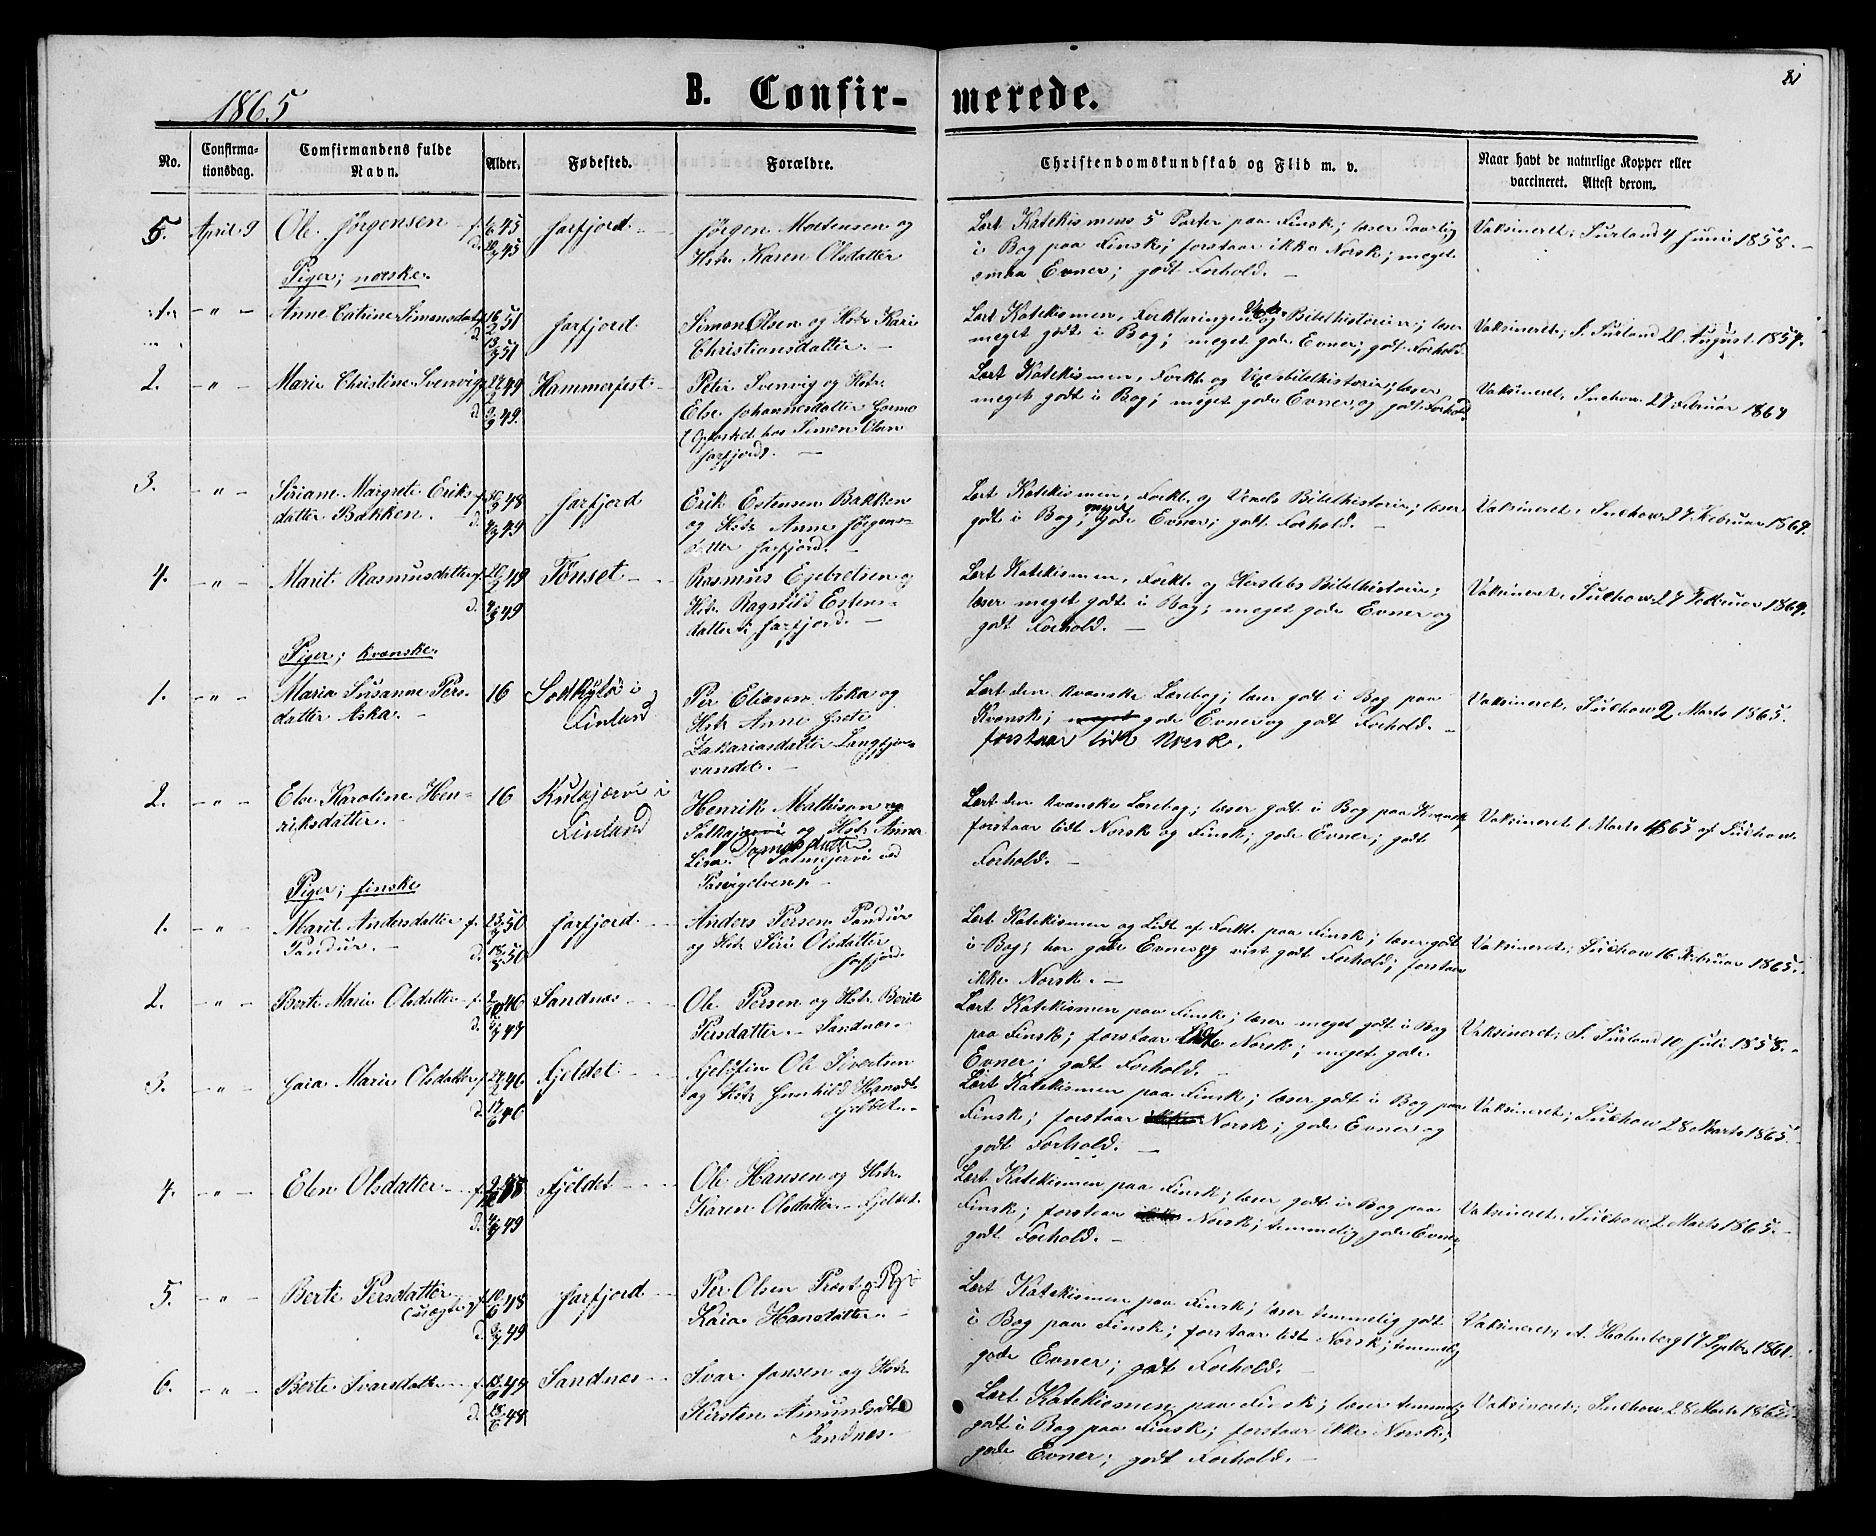 1865
B. Confirmerede.
81
No.
Confirmationsdag.
Comfirmandens fulde Navn.
Alder.
Fødested.
Forældre.
Christendomskundskab og Flid m. v.
Naar havt de naturlige Kopper eller vaccineret. Attest derom.
5. April 9 Ole Jørgensen f. 45 Jarfjord Jørgen Mortensen og
d. 45 Hstr. Karen Olsdatter
Lært Katekismens 5 Parter paa Finsk; læser daarlig
i Bog paa Finsk; forstaar ikke Norsk; meget
smaa Evner; godt Forhold. —
Vaksineret; Surland 4 Juni 1858. —
Piger; norske.
1. - " - Anne Catrine Simonsdatter 51 Jarfjord Simon Olsen og Hstr. Kari
51 Christiansdatter. —
Lært Katekismen, Forklaringen og Bibelhistorien; læser
meget godt i Bog; meget gode Evner; godt Forhold.
Vaksineret; S. Surland 20 August 1857.
2. - " - Marie Christine Svenvig f. 49 Hammerfest Peter Svenvig og Hstr.
d. 49. Else Johannesdatter Gormo
(Opfostret hos Simon Olsen
Jarfjord). —
Lært Katekismen, Forkl. og Bibelhistorie; læser
meget godt i Bog; meget gode Evner og godt Forhold.
Vaksineret, Suchow 27 Februar 1864
3. - " - Siriane Margrete Eriks- f. 48 Jarfjord Erik Estensen Bakken
datter Bakken. — d. 49 og Hstr. Anne Jørgens-
datter Jarfjord. —
Lært Katekismen, Forkl. og Bibelhistorie; læser
godt i Bog; meget gode Evner; godt Forhold. —
Vaksineret, Suchow 27 Februar 1864.
4. - " - Marit Rasmusdatter f. 49 Tönset Rasmus Ejebretsen og
d. 49 Hstr. Ragnhild Estens-
datter Jarfjord. —
Lært Katekismen, Forkl. og Herslebs Bibelhistorie;
læser meget godt i Bog; meget gode Evner og
godt Forhold. —
Vaksineret, Suchow 27 Februar 1864.
Piger; kvænske.
1. - " - Maria Susanne Pers- 16 Sodkylä i Per Eliason Aska og
datter Aska. — Finland Hstr. Anne Grete
Zakariasdatter Langfjor-
vandet. —
Lært den kvænske Lærebog; læser godt i Bog paa
Kvænsk; meget gode Evner og godt Forhold. —
forstaar lidt Norsk.
Vaksineret, Suchow 2 Marts 1865.
2. - " - Else Karoline Hen- 16 Kulajærvi i Henrik Mathison og
riksdatter. — Finland og Hstr. Anna
Lisa
Pasvigelven). —
Lært den kvænske Lærebog; læser godt i Bog paa Kvænsk
forstaar lidt Norsk og Finsk; gode Evner; godt
Forhold. —
Vaksineret 1 Marts 1865 af Suchow.
Piger; finske
1. - " - Marit Andersdatter f. 50 Jarfjord Anders Persen Pandur
Pandur. — d. 50 og Hstr. Siri Olsdatter
Jarfjord.
Lært Katekismen og Lidt af Forkl. paa Finsk; læser godt
i Bog; har gode Evner og vist godt Forhold; forstaar
ikke Norsk. —
Vaksineret; Suchow 16 Februar 1865.
2. - " - Berte Marie Olsdatter f. 46 Sandnæs Ole Persen og Hstr. Berit
d. 47 Persdatter Sandnæs
Lært Katekismen paa Finsk; læser meget godt i Bog
paa Finsk; forstaar lidt Norsk; meget gode
Evner; godt Forhold. —
Vaksineret; S. Surland 10 Juli 1858.
3. - " - Gaia Marie Olsdatter f. 46 Fjeldet Fjeldfin Ole Sivertsen
d. 46 og Hstr. Gunhild Hansdt.
Fjeldet.
Lært Katekismen paa Finsk; læser godt i Bog paa
Finsk; forstaar Norsk; gode Evner og
godt Forhold. —
Vaksineret; Suchow 28 Marts 1865.
4. - " - Elen Olsdatter f. 48 Fjeldet Ole Hansen og Hstr.
d. 49 Karen Olsdatter Fjeldet
Lært Katekismen paa Finsk; læser godt i Bog paa
Finsk; forstaar ikke Norsk; temmelig gode Evner,
godt Forhold. —
Vaksineret, Suchow 2 Marts 1865.
5. - " - Berte Persdatter f. 48 Jarfjord Per Olsen Præst og Pige
(uægte) d. 49 Kaia Hansdatter. —
Lært Katekismen paa Finsk; læser temmelig godt
i Bog paa Finsk; forstaar lidt Norsk; temmelig
gode Evner; godt Forhold. —
Vaksineret; A. Holmberg 17 Septbr. 1861.
6. - " - Berte Ivarsdatter f. 47 Sandnæs Ivar Jonsen og Hstr.
d. 48 Kirsten Amundsdt.
Sandnæs.
Lært Katekismen paa Finsk; læser temmelig
godt i Bog paa Finsk; forstaar ikke Norsk;
gode Evner; godt Forhold. —
Vaksineret; Suchow 28 Marts 1865.